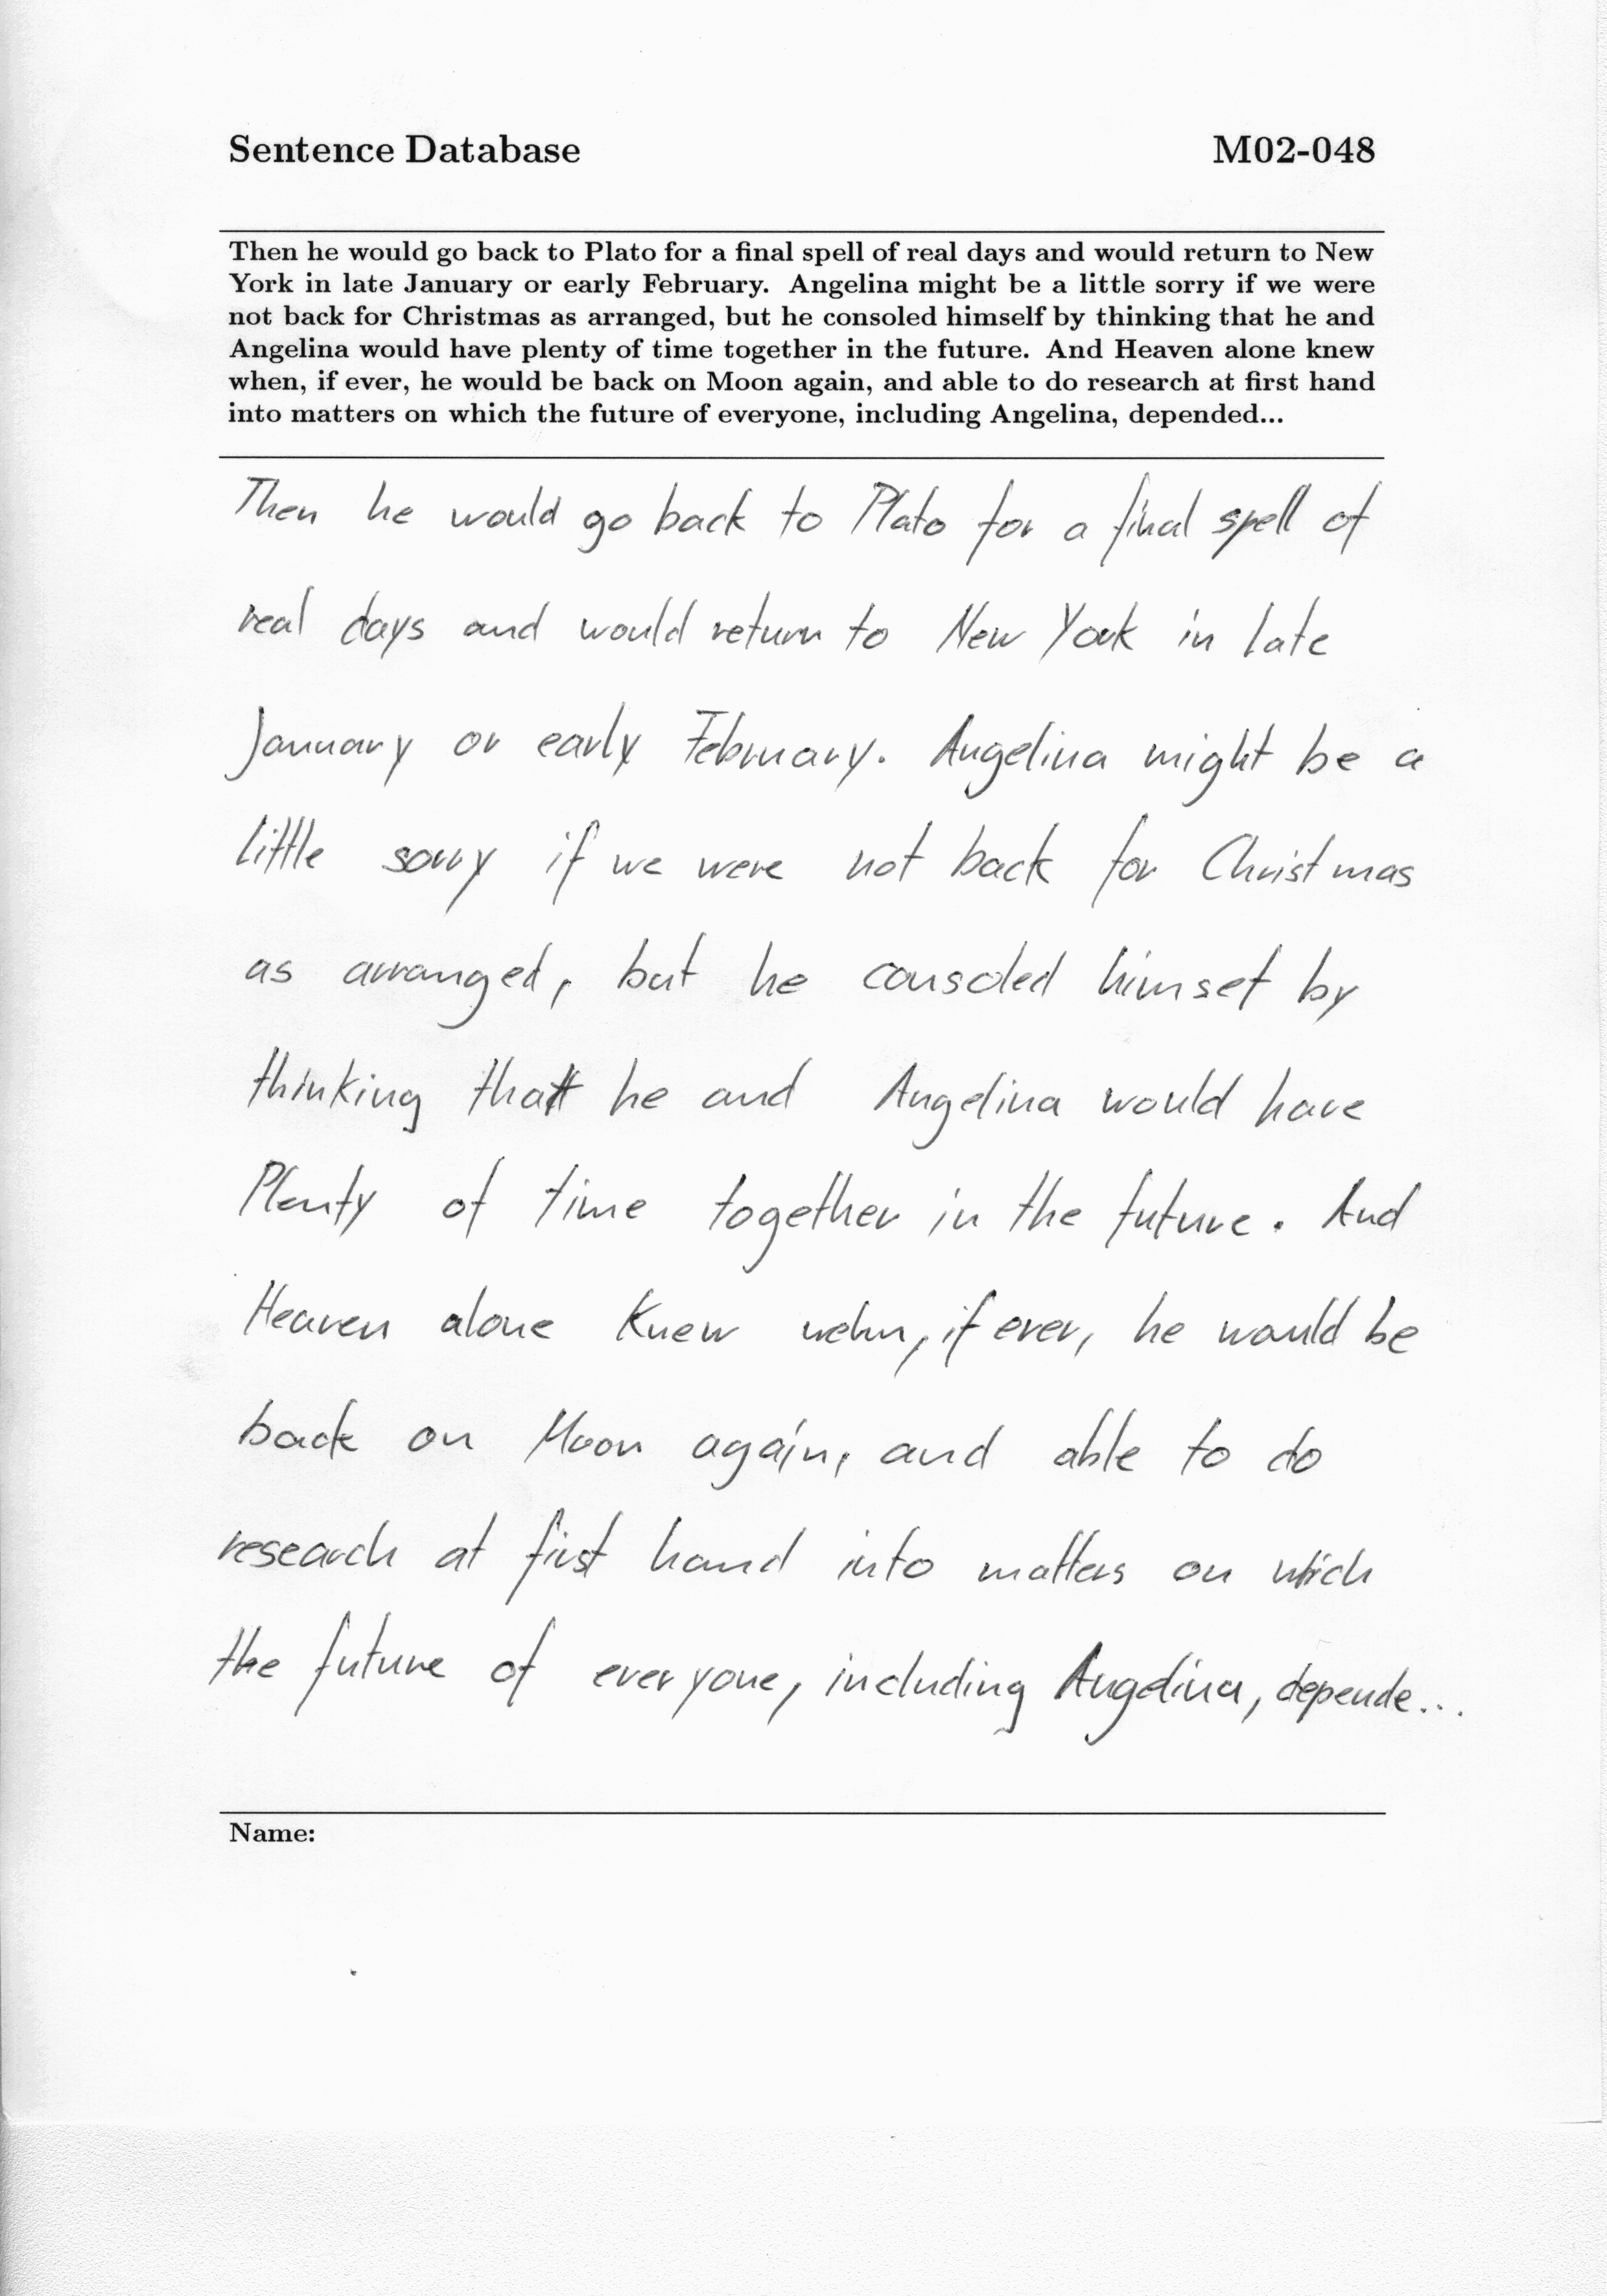 Sentence Database M02-048
Then he would go back to Plato for a final spell of real days and would return to New
York in late January or early February. Angelina might be a little sorry if we were
not back for Christmas as arranged, but he consoled himself by thinking that he and
Angelina would have plenty of time together in the future. And Heaven alone knew
when, if ever, he would be back on Moon again, and able to do research at first hand
into matters on which the future of everyone, including Angelina, depended...
Then he would go back to Plato for a final spell of
real days and would return to New York in late
January or early February. Angelina might be a
little sorry if we were not back for Christmas
as arranged, but he consoled himsef by
thinking that he and Angelina would have
Plenty of time together in the future. And
Heaven alone knew wehn, if ever, he would be
back on Moon again, and able to do
research at first hand into matters on wich
the future of everyone, including Angelina, depende...
Name: